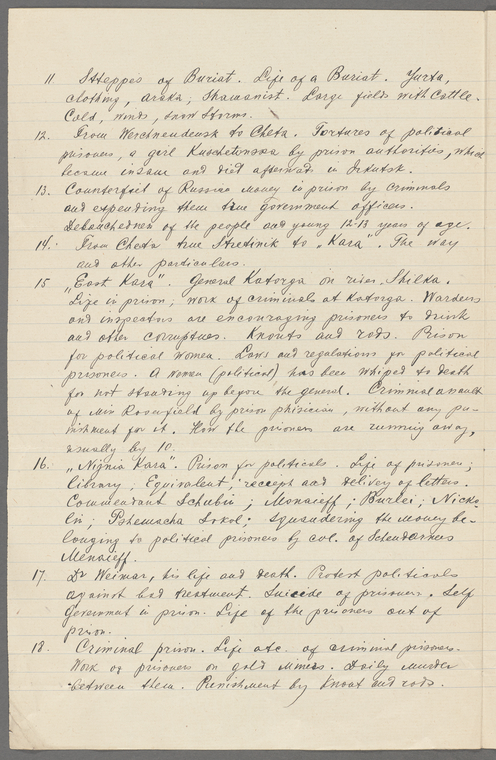 11. Stteppes of Buriat. Life of a Buriat. Yurta,
clothing, araka, Shamanist. Large fields with Cattle.
Cold, winds, snow storms.
12. From Werchneudensk to Cheta. Tortures of political
prisoners, a girl Kuschetowska by prison authorities, which
became insane and died afterwards in Irkutsk.
13. Counterfeit of Russian money in prison by criminals
and expending them true government officers.
Debauchednes of the people and young 12-13 years of age.
14. From Cheta true Stretinik to „Kara". The way
and other particulars.
15 „East Kara". General Katorga on river, Shilka.
Life in prison, work of criminals at Katorga. Warders
and inspectors are encouraging prisoners to drink
and other corruptues. Knouts and rods. Prison
for political women. Laws and regulations for political
prisoners. A women (political) has been whiped to death
for not standing up before the general. Criminal assault
of Miss Rosenfield by prison phisician, without any pu-
nishment for it. How the prisoners are running away,
usually by 10.
16. „Nijnia Kara". Prison for politicals. Life of prisoners;
library, Equivalent, receept and delivery of letters.
Commendant Schubin; Monaieff; Burlei; Nicko-
lin; Pshemacha Sokol; squandering the money be-
longing to political prisoners by col. of Schendarmes
Menaieff.
17. Dr Weimar, his life and death. Protest politicals
against bad treatment. Suicide of prisoners. Self
Government in prison. Life of the prisoners out of
prison.
18. Criminal prison. Life etc. of criminal prisoners.
Work of prisoners on gold Mines. Daily murder
between them. Penishment by Knout and rods.